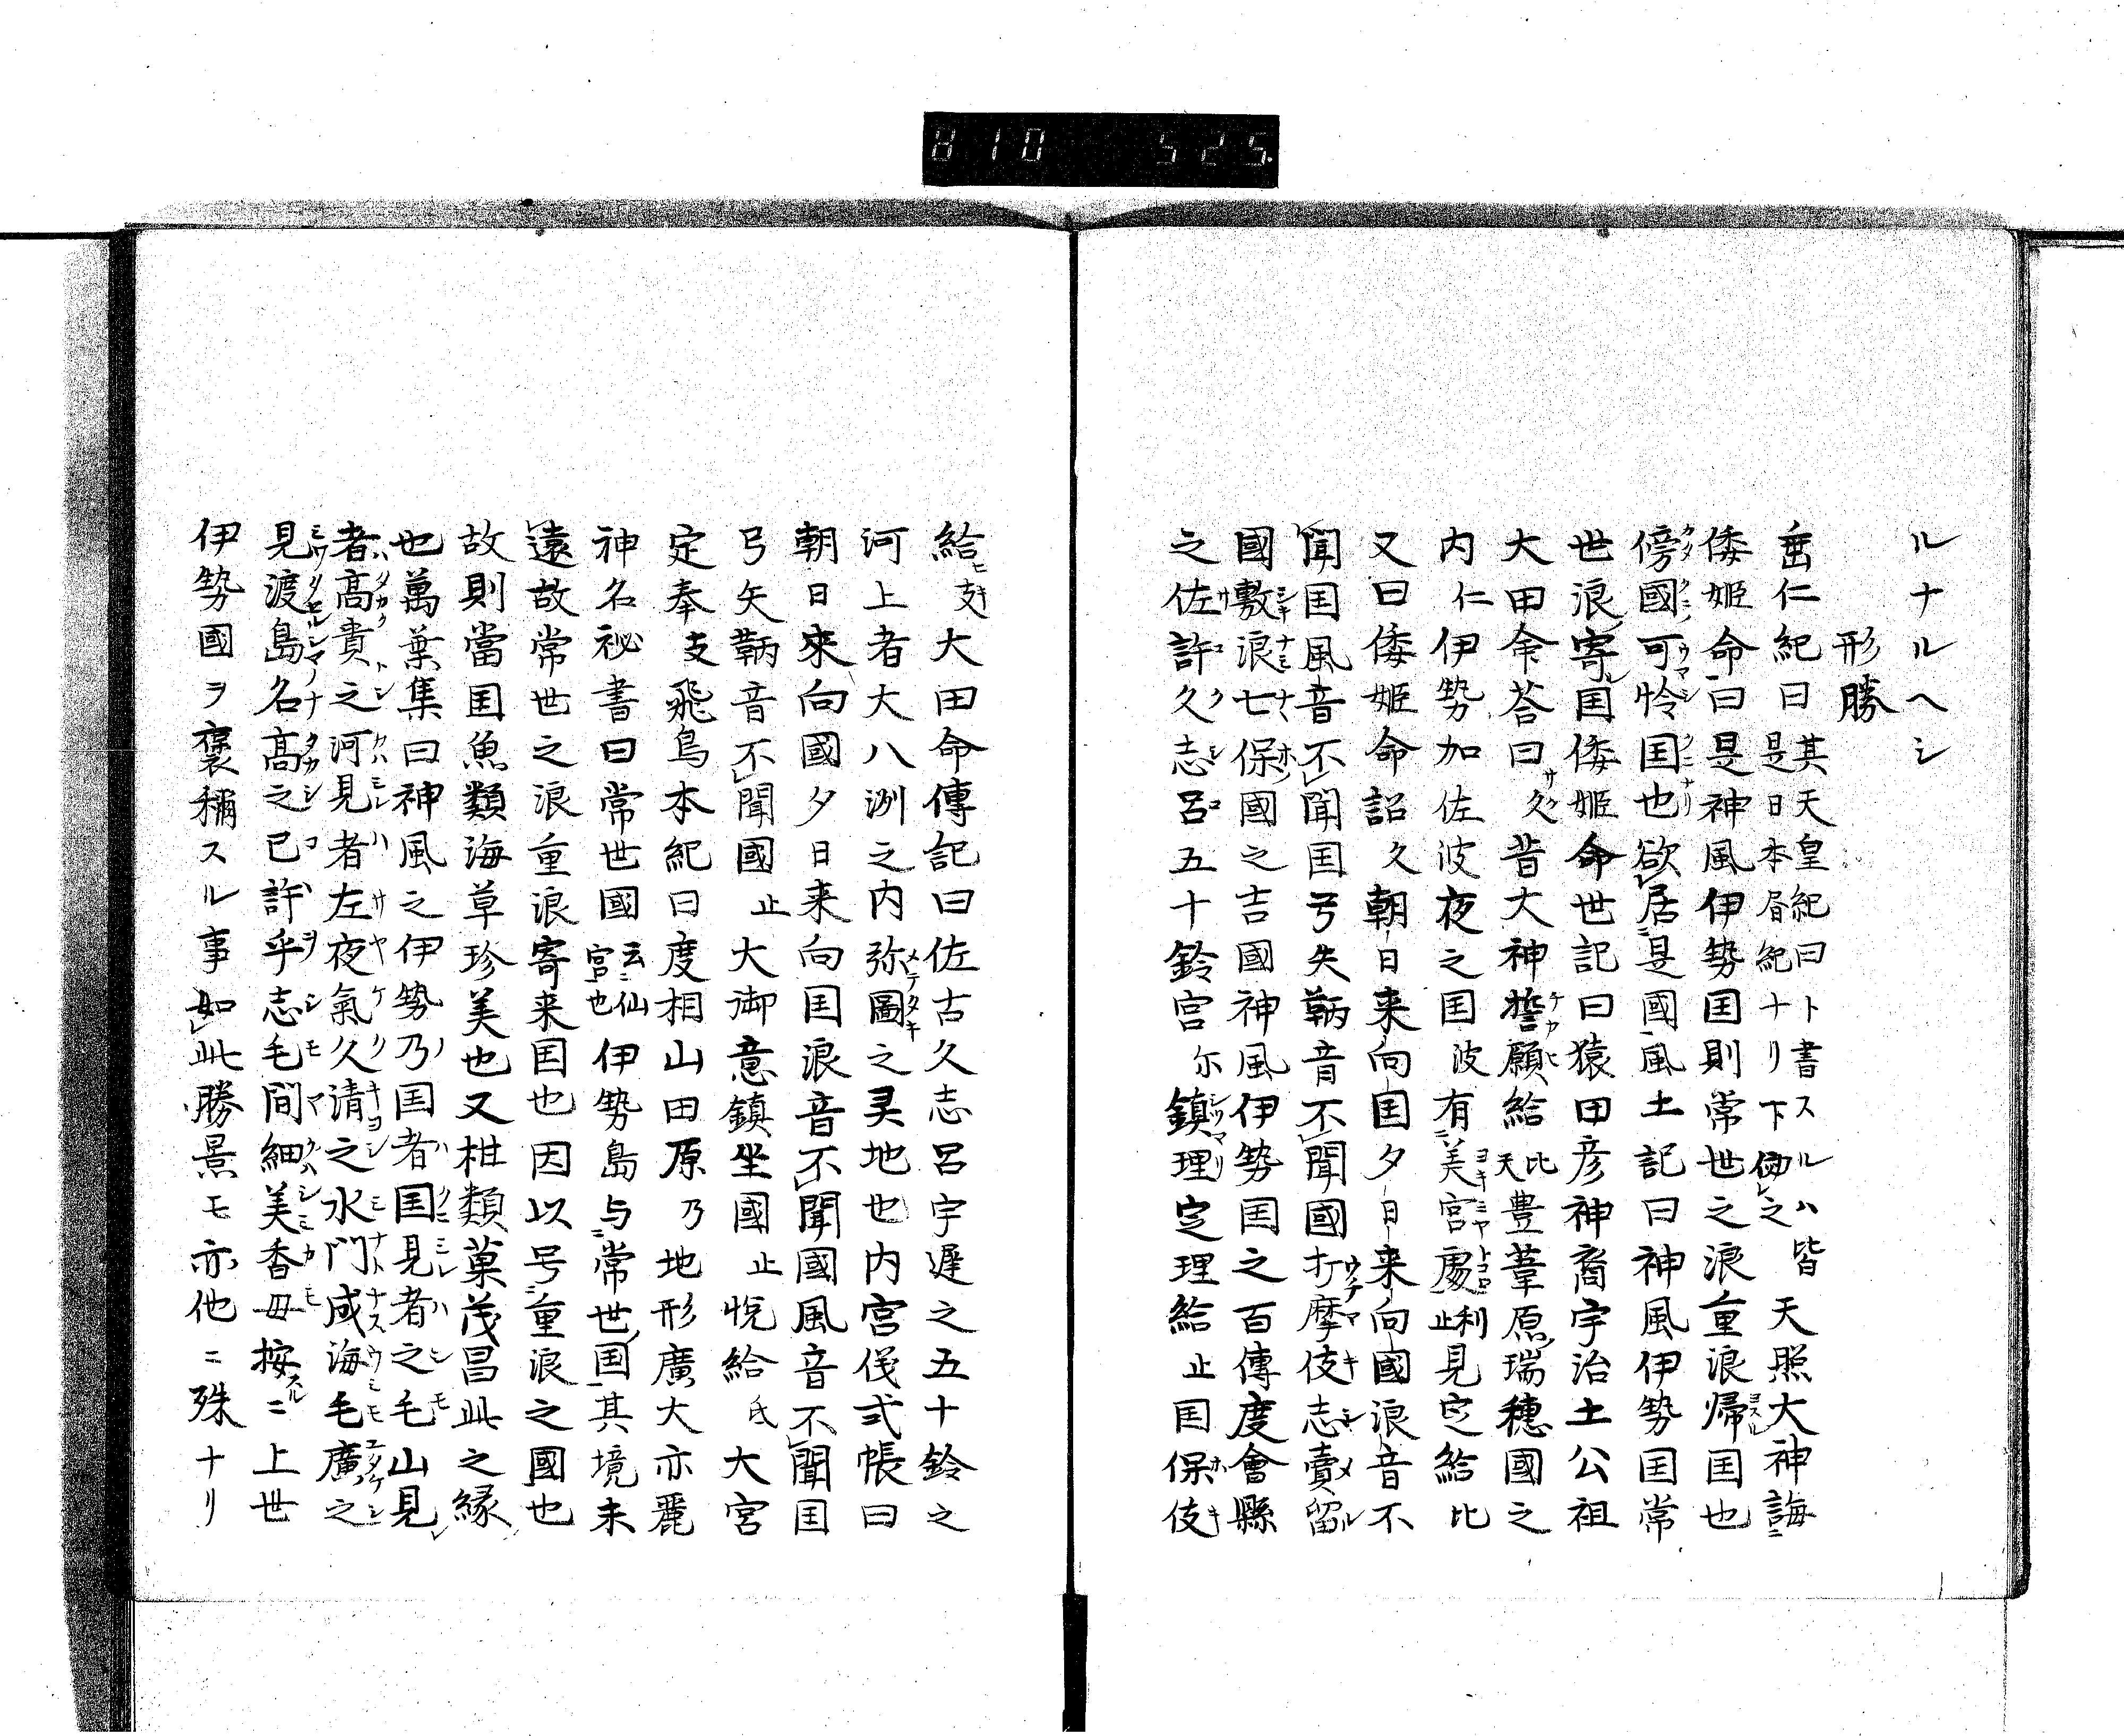 810 525.
ルナルヘシ
形勝
垂仁紀曰其天皇紀曰ト書スルハ皆是日本層紀ナリ下傚之天照大神誨
倭姬命曰是神風伊勢国則常世之浪重浪帰国也
傍國可怜国也欲居是國風土記曰神風伊勢国常
世浪寄国倭姬命世記曰猿田彦神裔宇治土公祖
大田命荅曰久昔大神誓願給比天豊葦原瑞穗國之
内仁伊勢加佐波夜之国波有美宮處利止見定給比
又曰倭姬命詔久朝日来向国夕日来向國浪音不
聞国風音不聞国弓矢鞆音不聞國打摩伎志賣留
國敷浪七保國之吉國神風伊勢国之百傳度會縣
之佐許久志呂五十鈴宮尓鎮理定理給止国保伎
給支大田命傳記曰佐古久志呂宇遲之五十鈴之
河上者大八洲之内弥圖之灵地也内宮儀式帳曰
朝日来向國夕日来向国浪音不聞國風音不聞国
弓矢鞆音不聞國止大御意鎮坐國止悦給氐大宮
定奉支飛鳥本紀曰度相山田原乃地形廣大亦麗
神名祕書曰常世國云仙宮也伊勢島与常世国其境未
遠故常世之浪重浪寄来国也因以号重浪之國也
故則當国魚類海草珍美也又柑類菓茂昌此之縁
也萬葉集曰神風之伊勢乃国者国見者之毛山見
者高貴之河見者左夜氣久清之水門成海毛廣之
見渡島名高之已許乎志毛間細美香毋按ニ上世
伊勢國ヲ褒稱スル事如此勝景モ亦他ニ殊ナリ